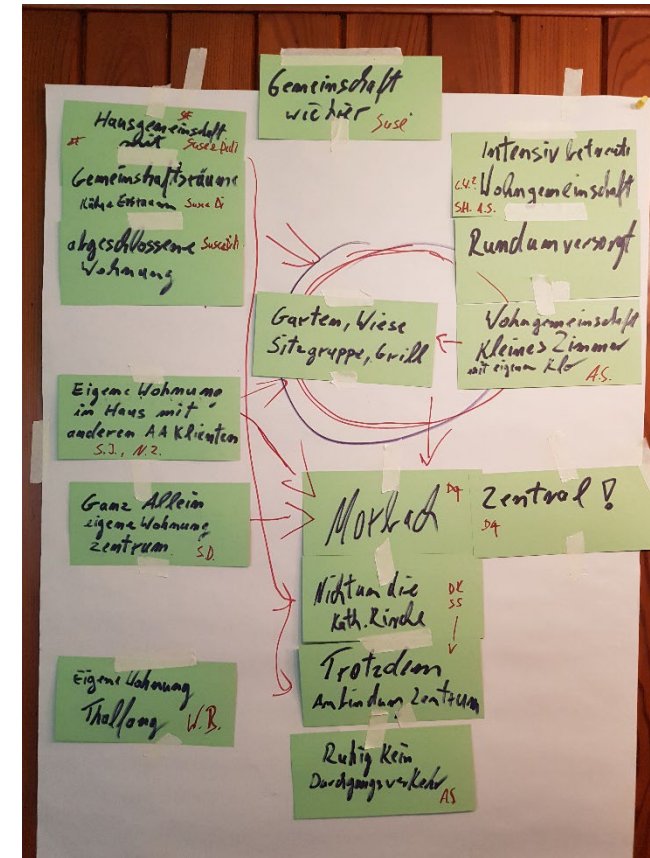 Gemeinschaft
wie hier Suse
Hausgemeinschaft
mit Suse
Gemeinschaftsräume
Suse Di
abgeschlossene
Wohnung
Intensiv betreute
Wohngemeinschaft
S.H. A.S.
Rundumversorgt
Wohngemeinschaft
Kleines Zimmer
mit eigenem Klo
A.S.
Garten, Wiese
Sitzgruppe, Grill
Eigene Wohnung
im Haus mit
anderen AA Klienten
S.J., N.Z.
Ganz Allein
eigene Wohnung
Zentrum S.D.
Morbach
Zentral!
Nicht um die
Kath. Kirche
DK
SS
Trotzdem
Anbindung Zentrum
Eigene Wohnung
Thalfang W.B.
Ruhig Kein
Durchgangsverkehr
AS